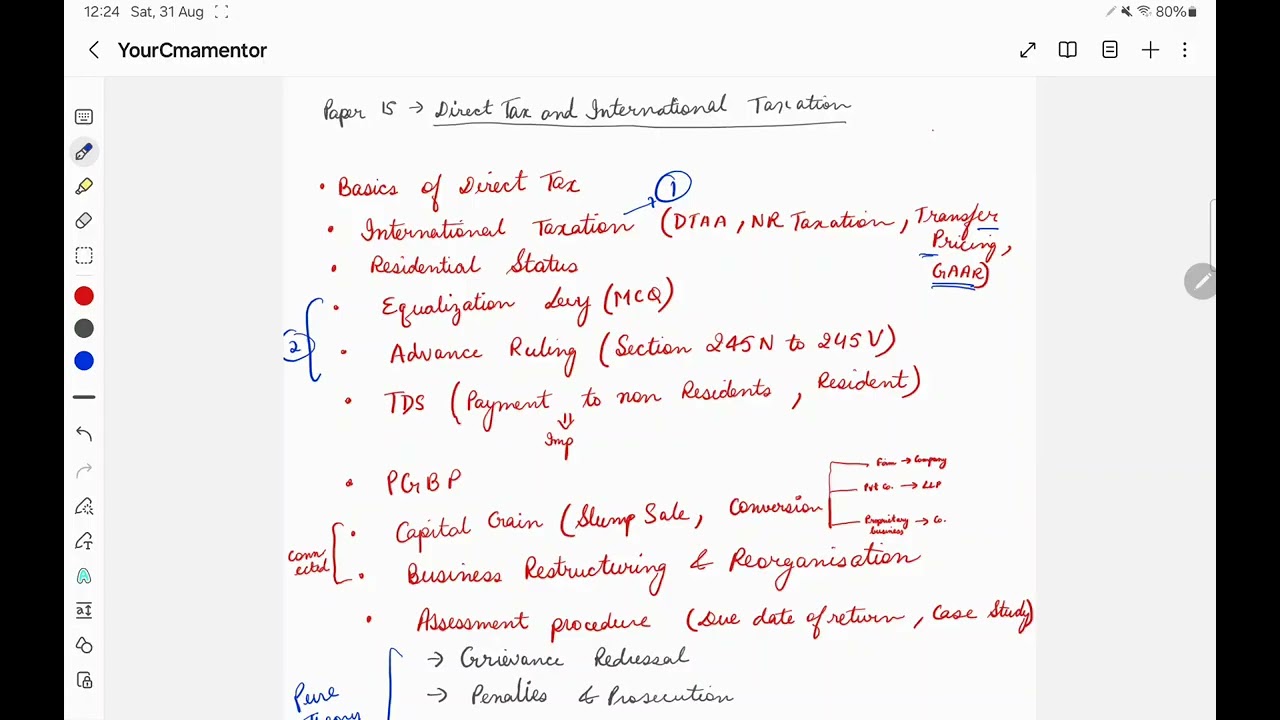 12:24 Sat, 31 Aug 80%
YourCmamentor
Paper 15 → Direct Tax and International Taxation
• Basics of Direct Tax
1
• International Taxation (DTAA, NR Taxation, Transfer Pricing, GAAR)
• Residential Status
• Equalization Levy (MCQ)
2
• Advance Ruling (Section 245N to 245V)
• TDS (Payment to non Residents, Resident)
⇓
Imp
• PGBP
• Capital Gain (Slump Sale, Conversion
Firm → Company
Pvt Co. → LLP
Proprietary business → Co.
connected
• Business Restructuring & Reorganisation
• Assessment procedure (Due date of return, Case Study)
→ Grievance Redressal
→ Penalties & Prosecution
Pure
Theory